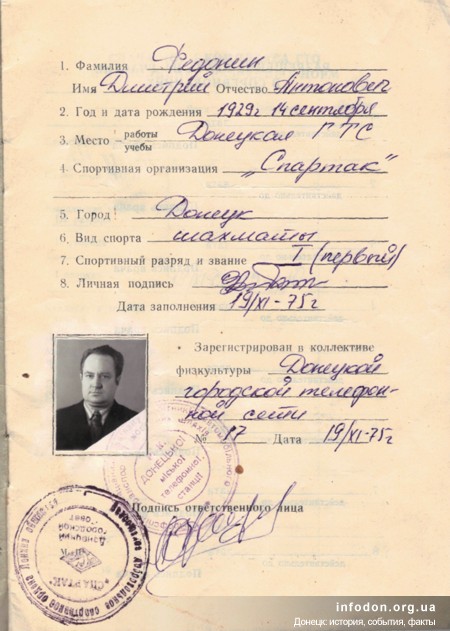 1. Фамилия Федонин
Имя Дмитрий Отчество Антонович
2. Год и дата рождения 1929г 14 сентября
3. Место работы учебы Донецкая ГТС
4. Спортивная организация „Спартак"
5. Город Донецк
6. Вид спорта шахматы
7. Спортивный разряд и звание I (первый)
8. Личная подпись
Дата заполнения 19/XI-75г
Зарегистрирован в коллективе
физкультуры Донецкой
городской телефон-
ной сети
№ 17 Дата 19/XI-75г
ДОНЕЦЬКОЇ
міської
телефонної
станції
Подпись ответственного лица
Донецкий
городской
совет
"СПАРТАК"
infodon.org.ua
Донецк: история, события, факты